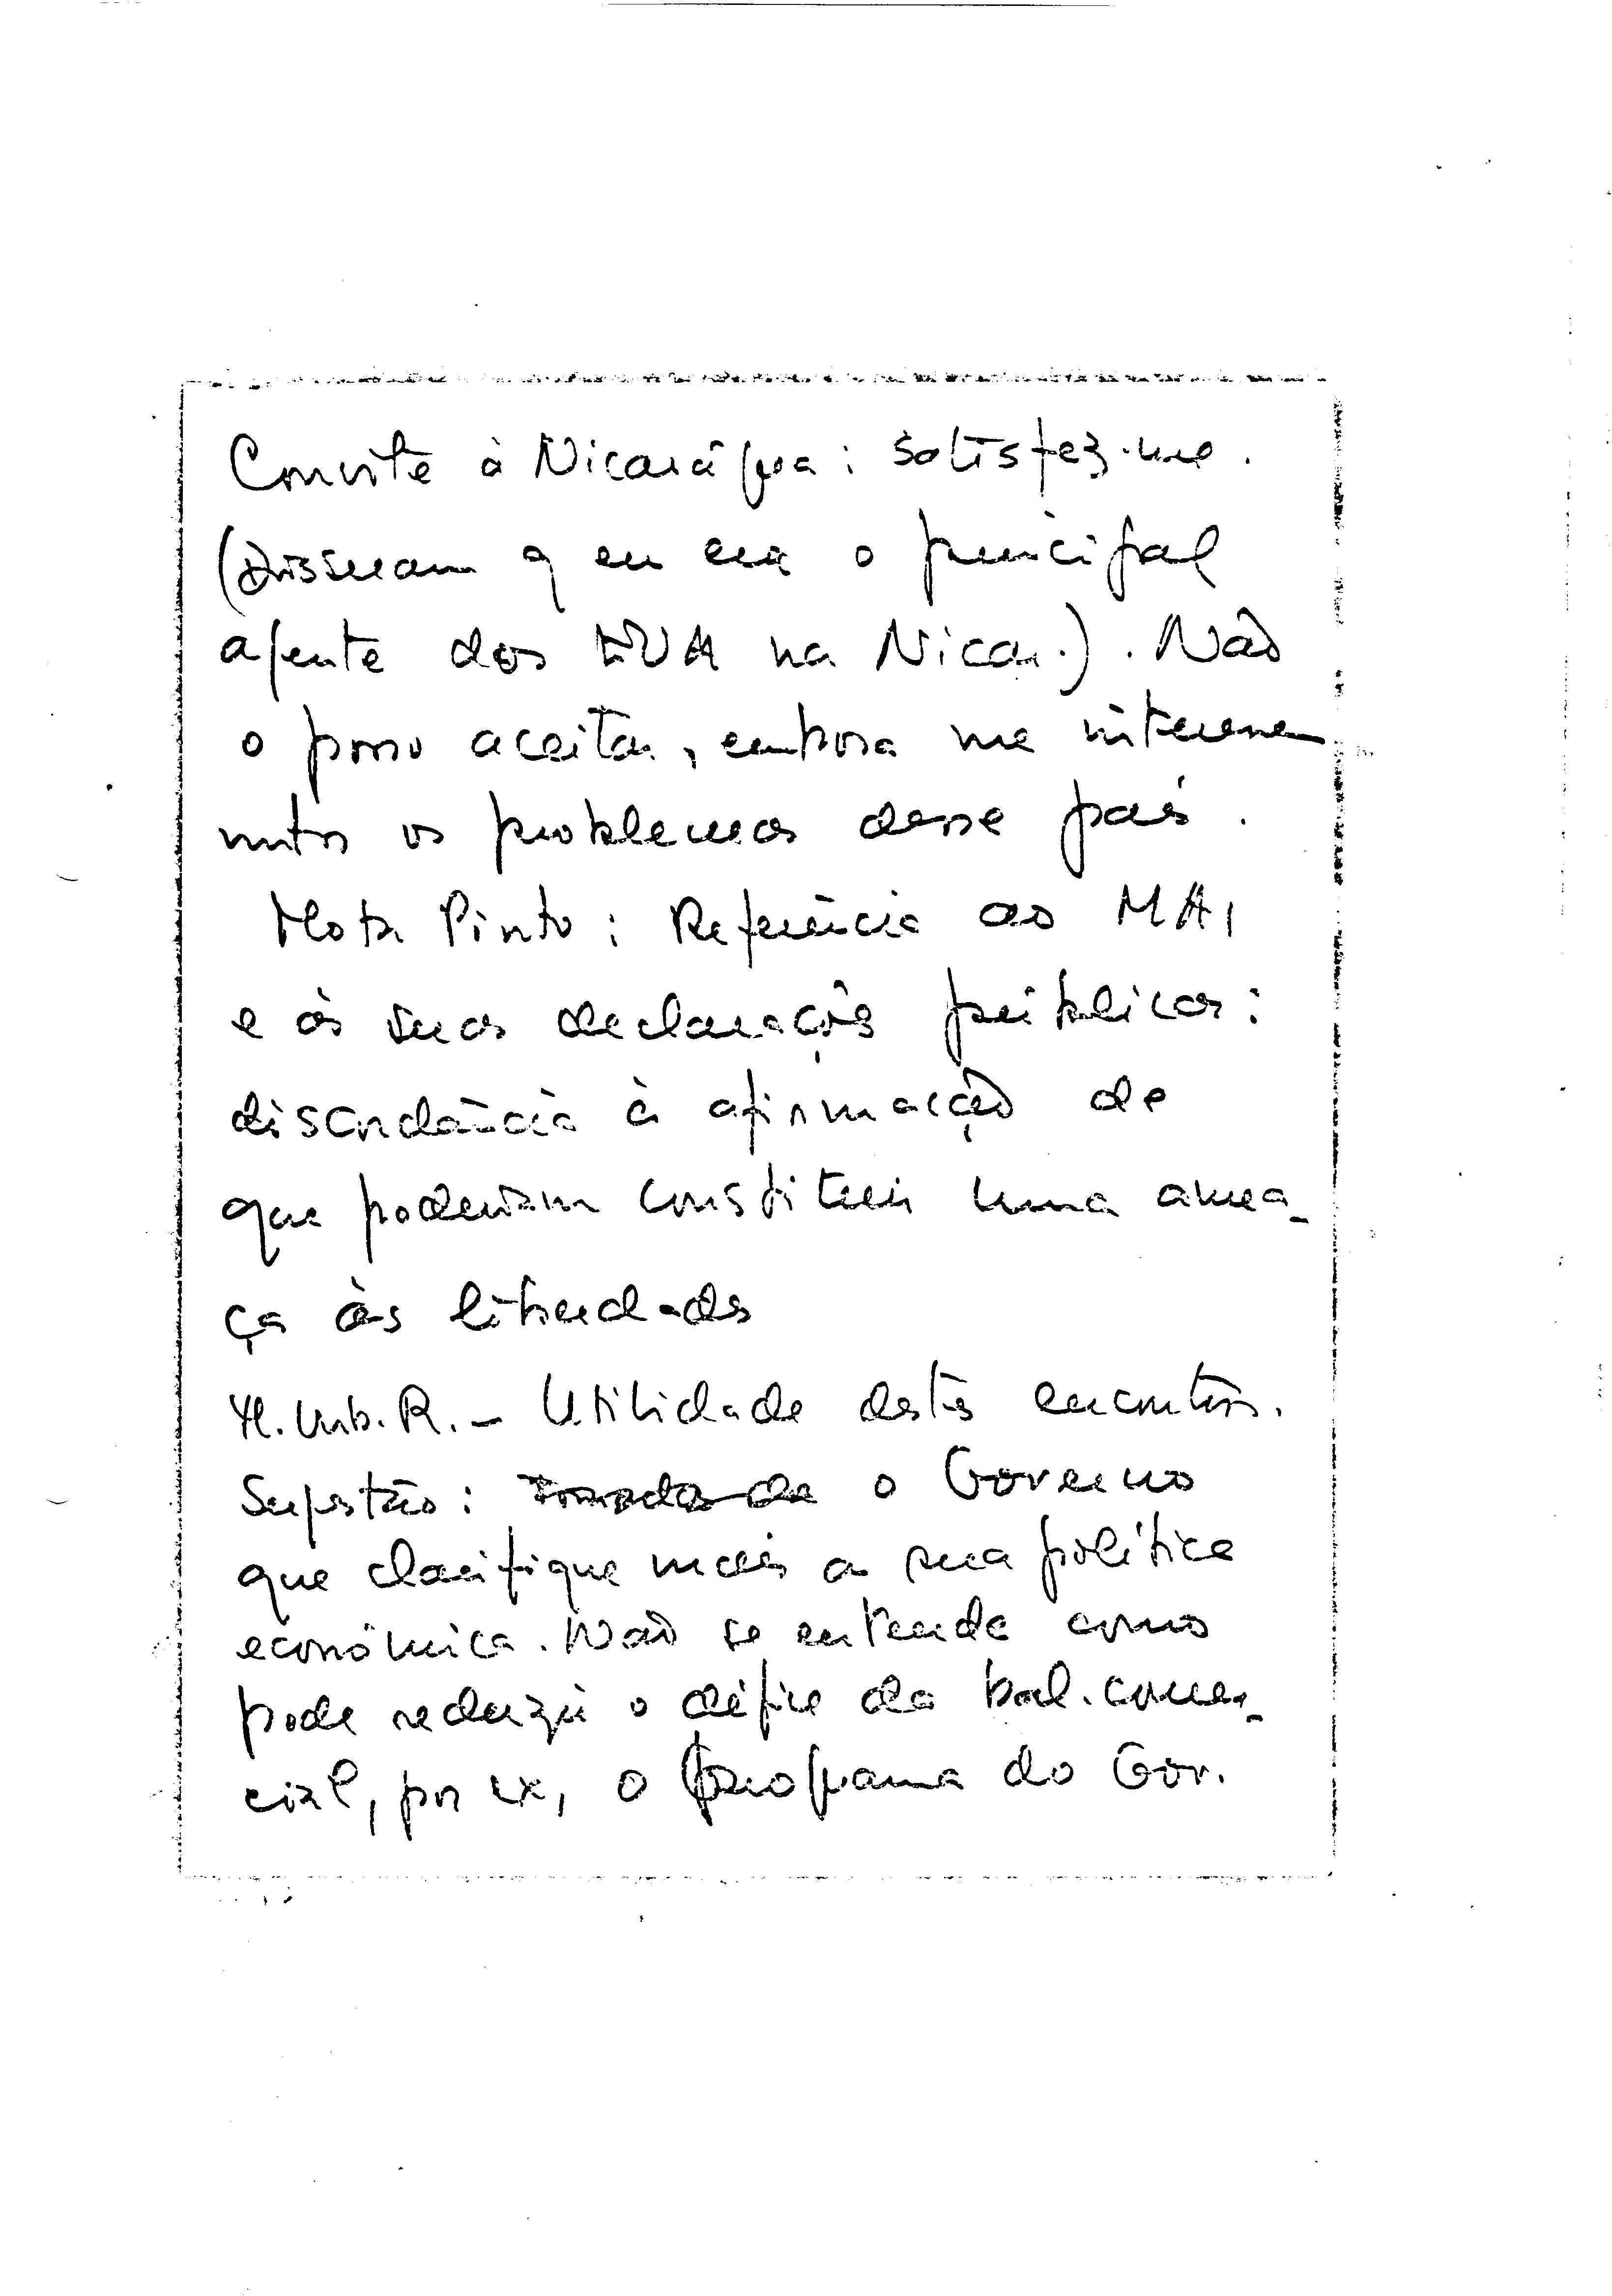 Convite à Nicarágua: satisfez-me.
(Disseram q eu era o principal
agente dos EUA na Nicar.). Não
o posso aceitar, embora me interessem
muito os problemas desse país.
Mota Pinto: Referência ao MAI
e às suas declarações públicas:
discordância à afirmação de
que poderiam constituir uma amea-
ça às liberdades
H. Urb. R. - Utilidade destes encontros.
Sugestão: o Governo
que clarifique mais a sua política
económica. Não se entende como
pode reduzir o défice da bal. comer-
cial, por ex, o programa do Gov.